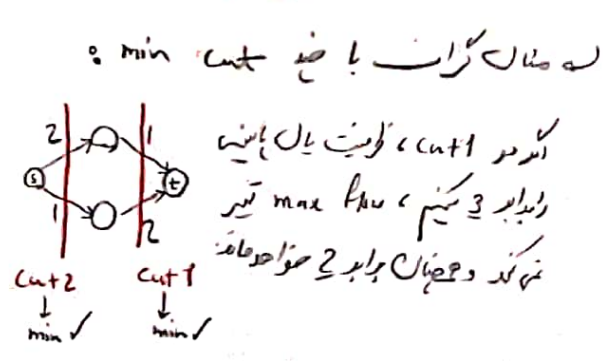 مثال گراف با ضد min cut :
اگر در cut 1 ، ظرفیت یال پایینی
را برابر 3 کنیم ، max flow تغییر
نمی کند و همچنان برابر 2 خواهد ماند.
2 1
s t
1 2
cut 2 cut 1
↓ ↓
min ✓ min ✓